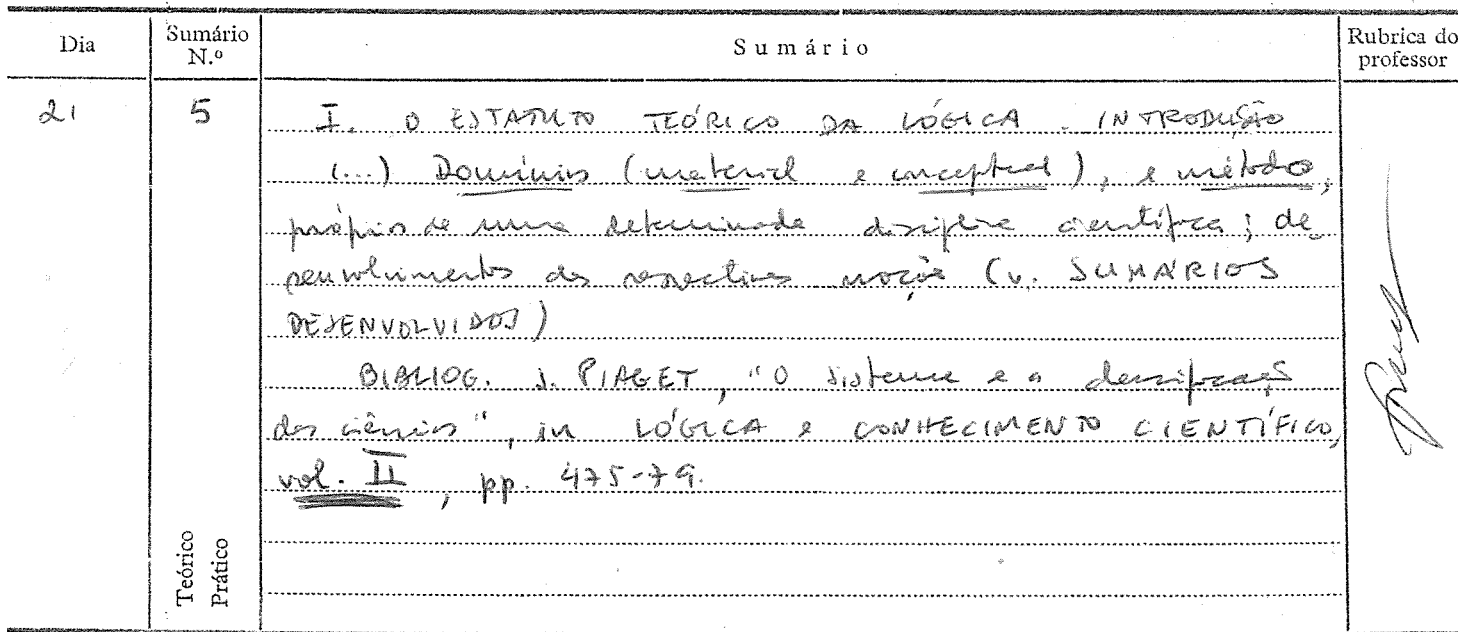 Dia
Sumário N.º
Sumário
Rubrica do professor
21
5
I. O ESTATUTO TEÓRICO DA LÓGICA. INTRODUÇÃO
(...) Domínios (material e conceptual), e método,
próprios de uma determinada disciplina científica; de
senvolvimentos das respectivas noções (v. SUMÁRIOS
DESENVOLVIDOS)
BIBLIOG. J. PIAGET, "O sistema e a classificação
das ciências", in LÓGICA e CONHECIMENTO CIENTÍFICO,
vol. II, pp. 475-79.
Teórico
Prático